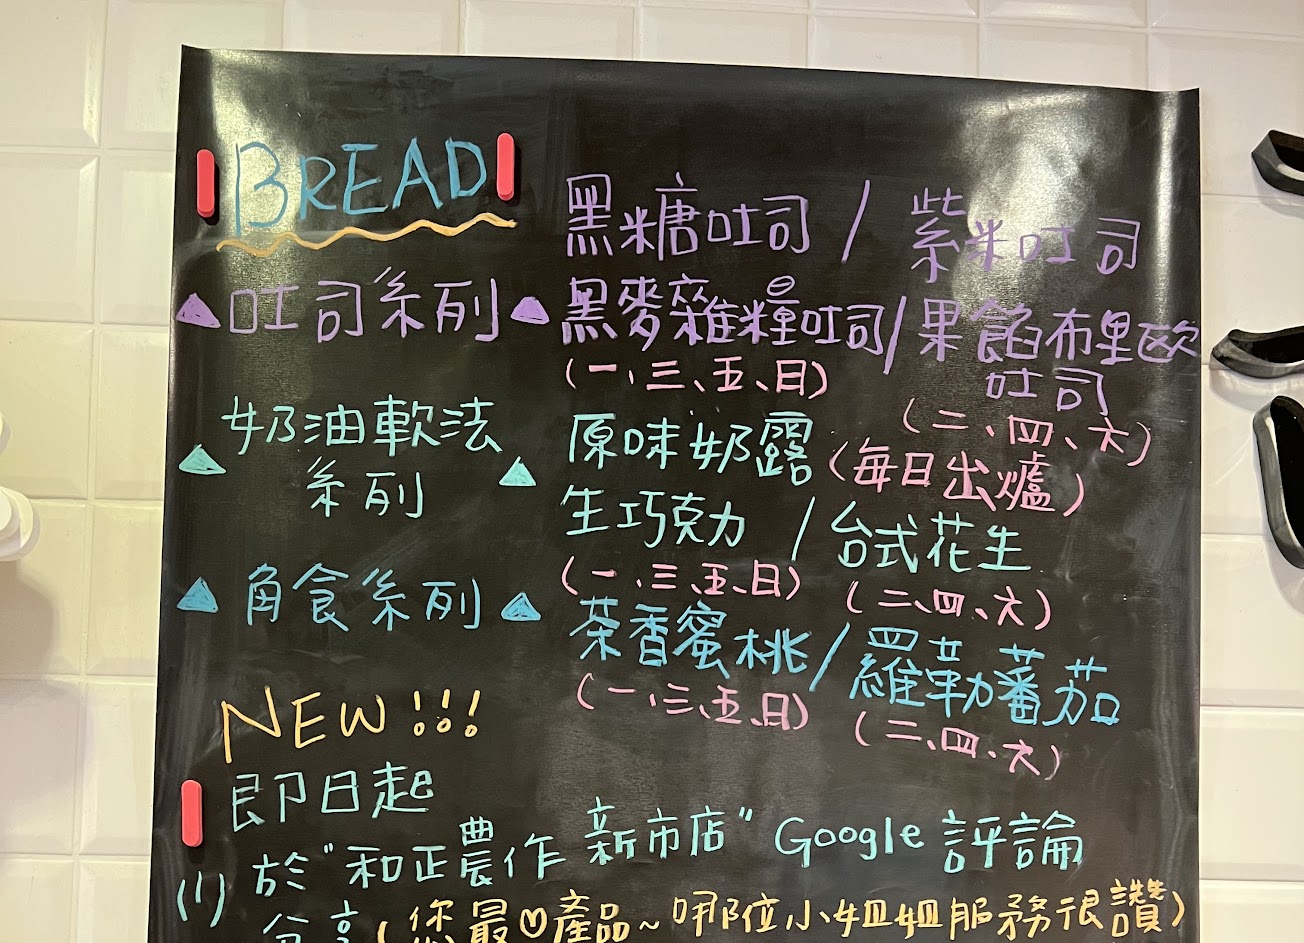 BREAD
黑糖吐司 / 紫米吐司
▲吐司系列▲
黑麥雜糧吐司/果餡布里歐吐司
(一、三、五、日)
(二、四、六)
▲奶油軟法系列▲
原味奶露(每日出爐)
生巧克力 / 台式花生
(一、三、五、日) (二、四、六)
▲角食系列▲
茶香蜜桃/羅勒蕃茄
(一、三、五、日) (二、四、六)
NEW!!!
即日起
(1) 於"和正農作 新市店" Google 評論
分享(您最♡產品~哪位小姐姐服務很讚)